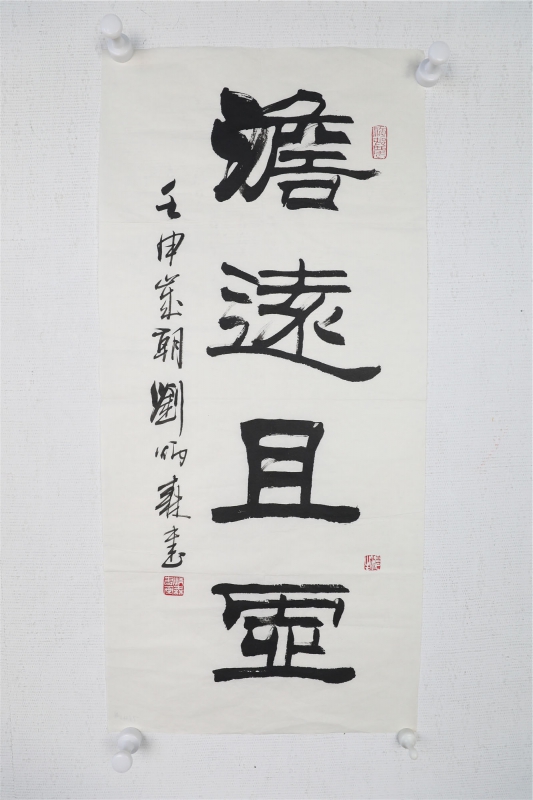 澹遠且
壬申歲朝劉炳森書